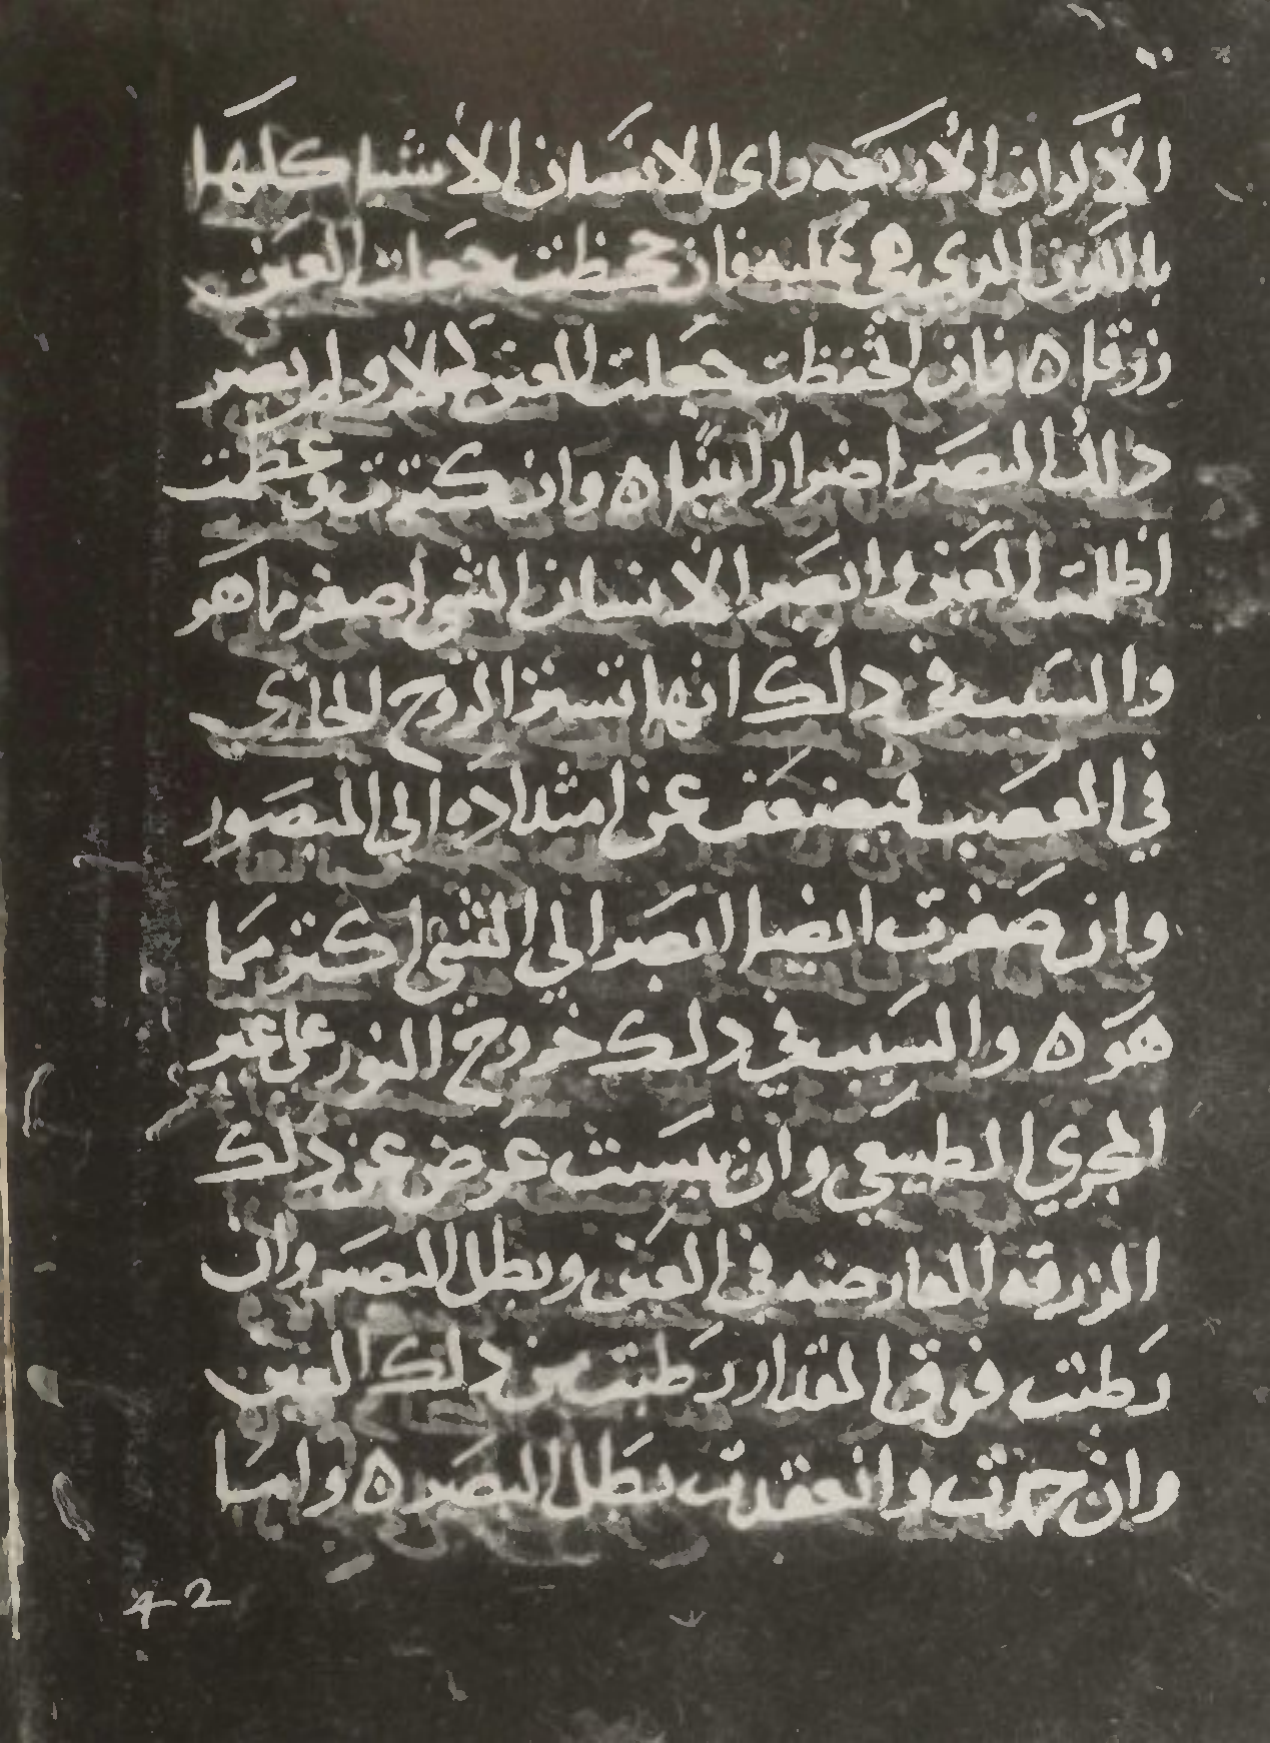 الالوان الاربعه وراى الانسان الاشيا كلها
باللون الذي هي عليه فان جحظت جعلت العين
زرقا ٥ فان انحفظت جعلت العين كحلا ولم يضر
ذلك البصر اضرارا بينا ٥ وان كترت وغلظت
اظلمت العين وابصر الانسان الشي اصغر ما هو
والسبب في ذلك انها تستر الروح الجاري
في العصب فيضعف عن امتداده الى المبصور
وان صغرت ايضا ابصر الي الشي اكتر مما
هو ٥ والسبب في ذلك خروج النور على غير
المجري الطبيعي وان يبست عرض عن ذلك
الزرقه العارضه في العين وبطل البصر وان
رطبت فوق المقدار رطبت من ذلك العين
وان جمدت وانعقدت بطل البصر ٥ واما
42